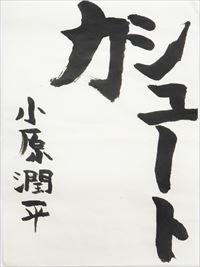 シュート
力
小原潤平